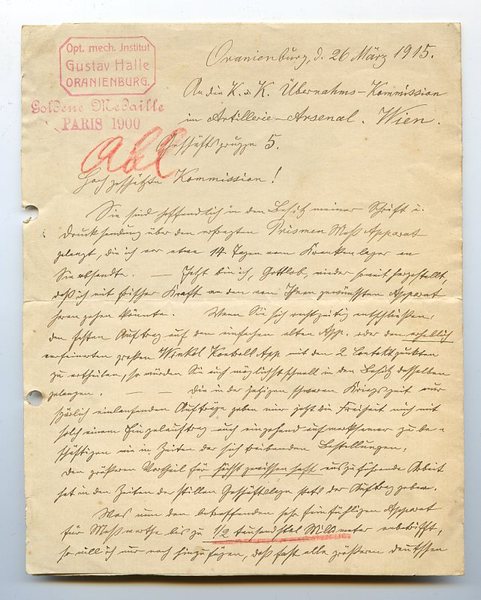 Opt. mech. Institut
Gustav Halle
ORANIENBURG.
Goldene Medaille
PARIS 1900
Oranienburg, d. 26 März 1915.
An die K. u. K. Übernahms-Kommission
im Artillerie-Arsenal. Wien.
Geschäftsgruppe 5.
abl
Hochgeschätzte Kommission!
Sie sind hoffentlich in den Besitz meiner Schrift u.
Drucksendung über den erfragten Prismen Mess Apparat
gelangt, die ich vor etwa 14 Tagen vom Krankenlager an
Sie absandte. — Jetzt bin ich, Gottlob, wieder soweit hergestellt,
daß ich mit frischer Kraft an den von Ihnen gewünschten Apparat
heran gehen könnte. Wenn Sie sich rechtzeitig entschließen,
den festen Auftrag auf den einfachen alten App. oder den erheblich
verfeinerten großen Winkel Kontroll App mit den 2 Kontaktpunkten
zu erteilen, so würden Sie auch möglichst schnell in den Besitz desselben
gelangen. — Die in der jetzigen schweren Kriegszeit nur
spärlich einlaufenden Aufträge geben mir jetzt die Freiheit mich mit
solch einem Einzelauftrag auch eingehend aufmerksamer zu be-
schäftigen wie in Zeiten der sich treibenden Bestellungen.
Den größeren Vorteil für auszuführende Arbeit
hat in den Zeiten der stillen Geschäftslage stets der Auftraggeber.
Was nun den betreffenden sehr Einfühligen Apparat
für Messwerthe bis zu 1/2 tausendstel Millimeter anbetrifft,
so will ich nur noch hinzufügen, daß fast alle größeren deutschen